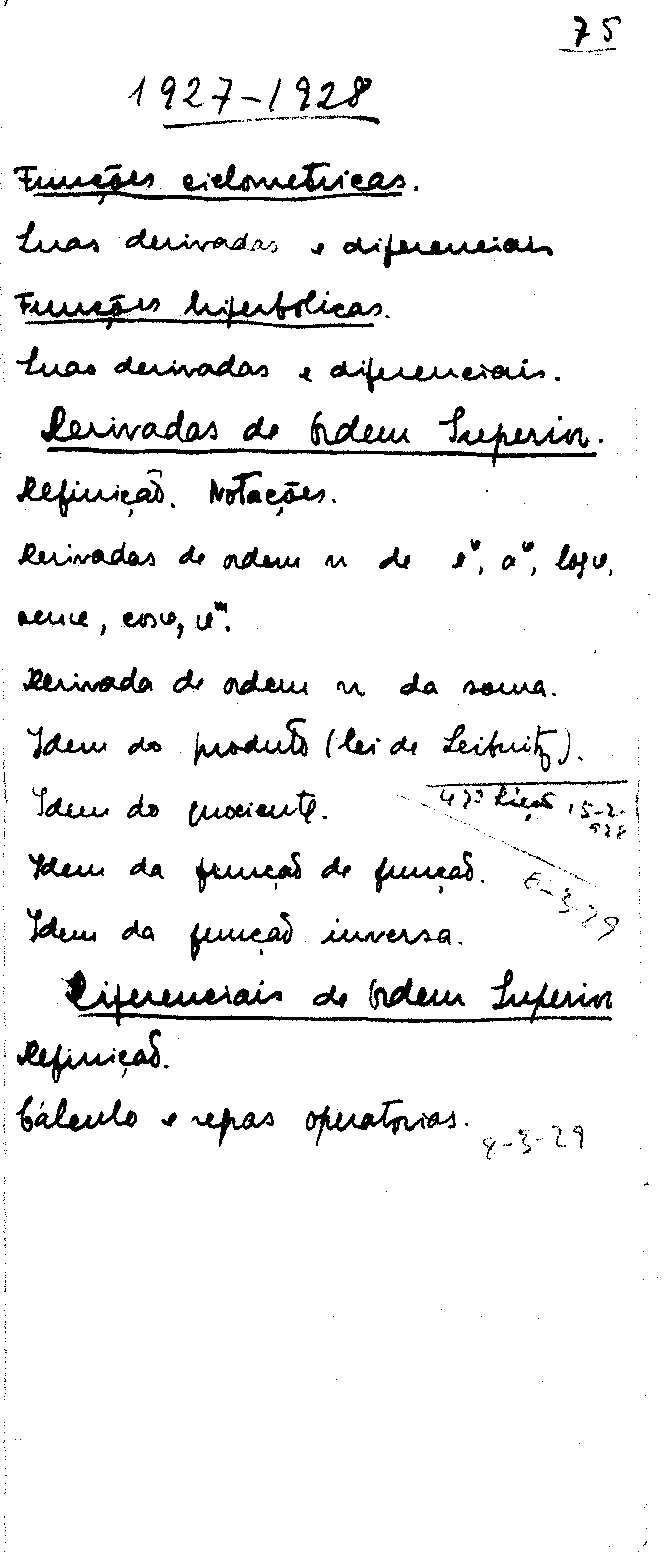 75
1927-1928
Funções ciclometricas.
Suas derivadas e diferenciais
Funções hiperbólicas.
Suas derivadas e diferenciais.
Derivadas de Ordem Superior.
Definição. Notações.
Derivadas de ordem n de eᵘ, aᵘ, log u,
sen u, cos u, uᵐ.
Derivada de ordem n da soma.
Idem do produto (lei de Leibnitz).
Idem do quociente. 47ª lição 15-2-928
Idem da função de função. 6-3-29
Idem da função inversa.
Diferenciais de Ordem Superior
Definição.
Cálculo e regras operatorias. 8-3-29